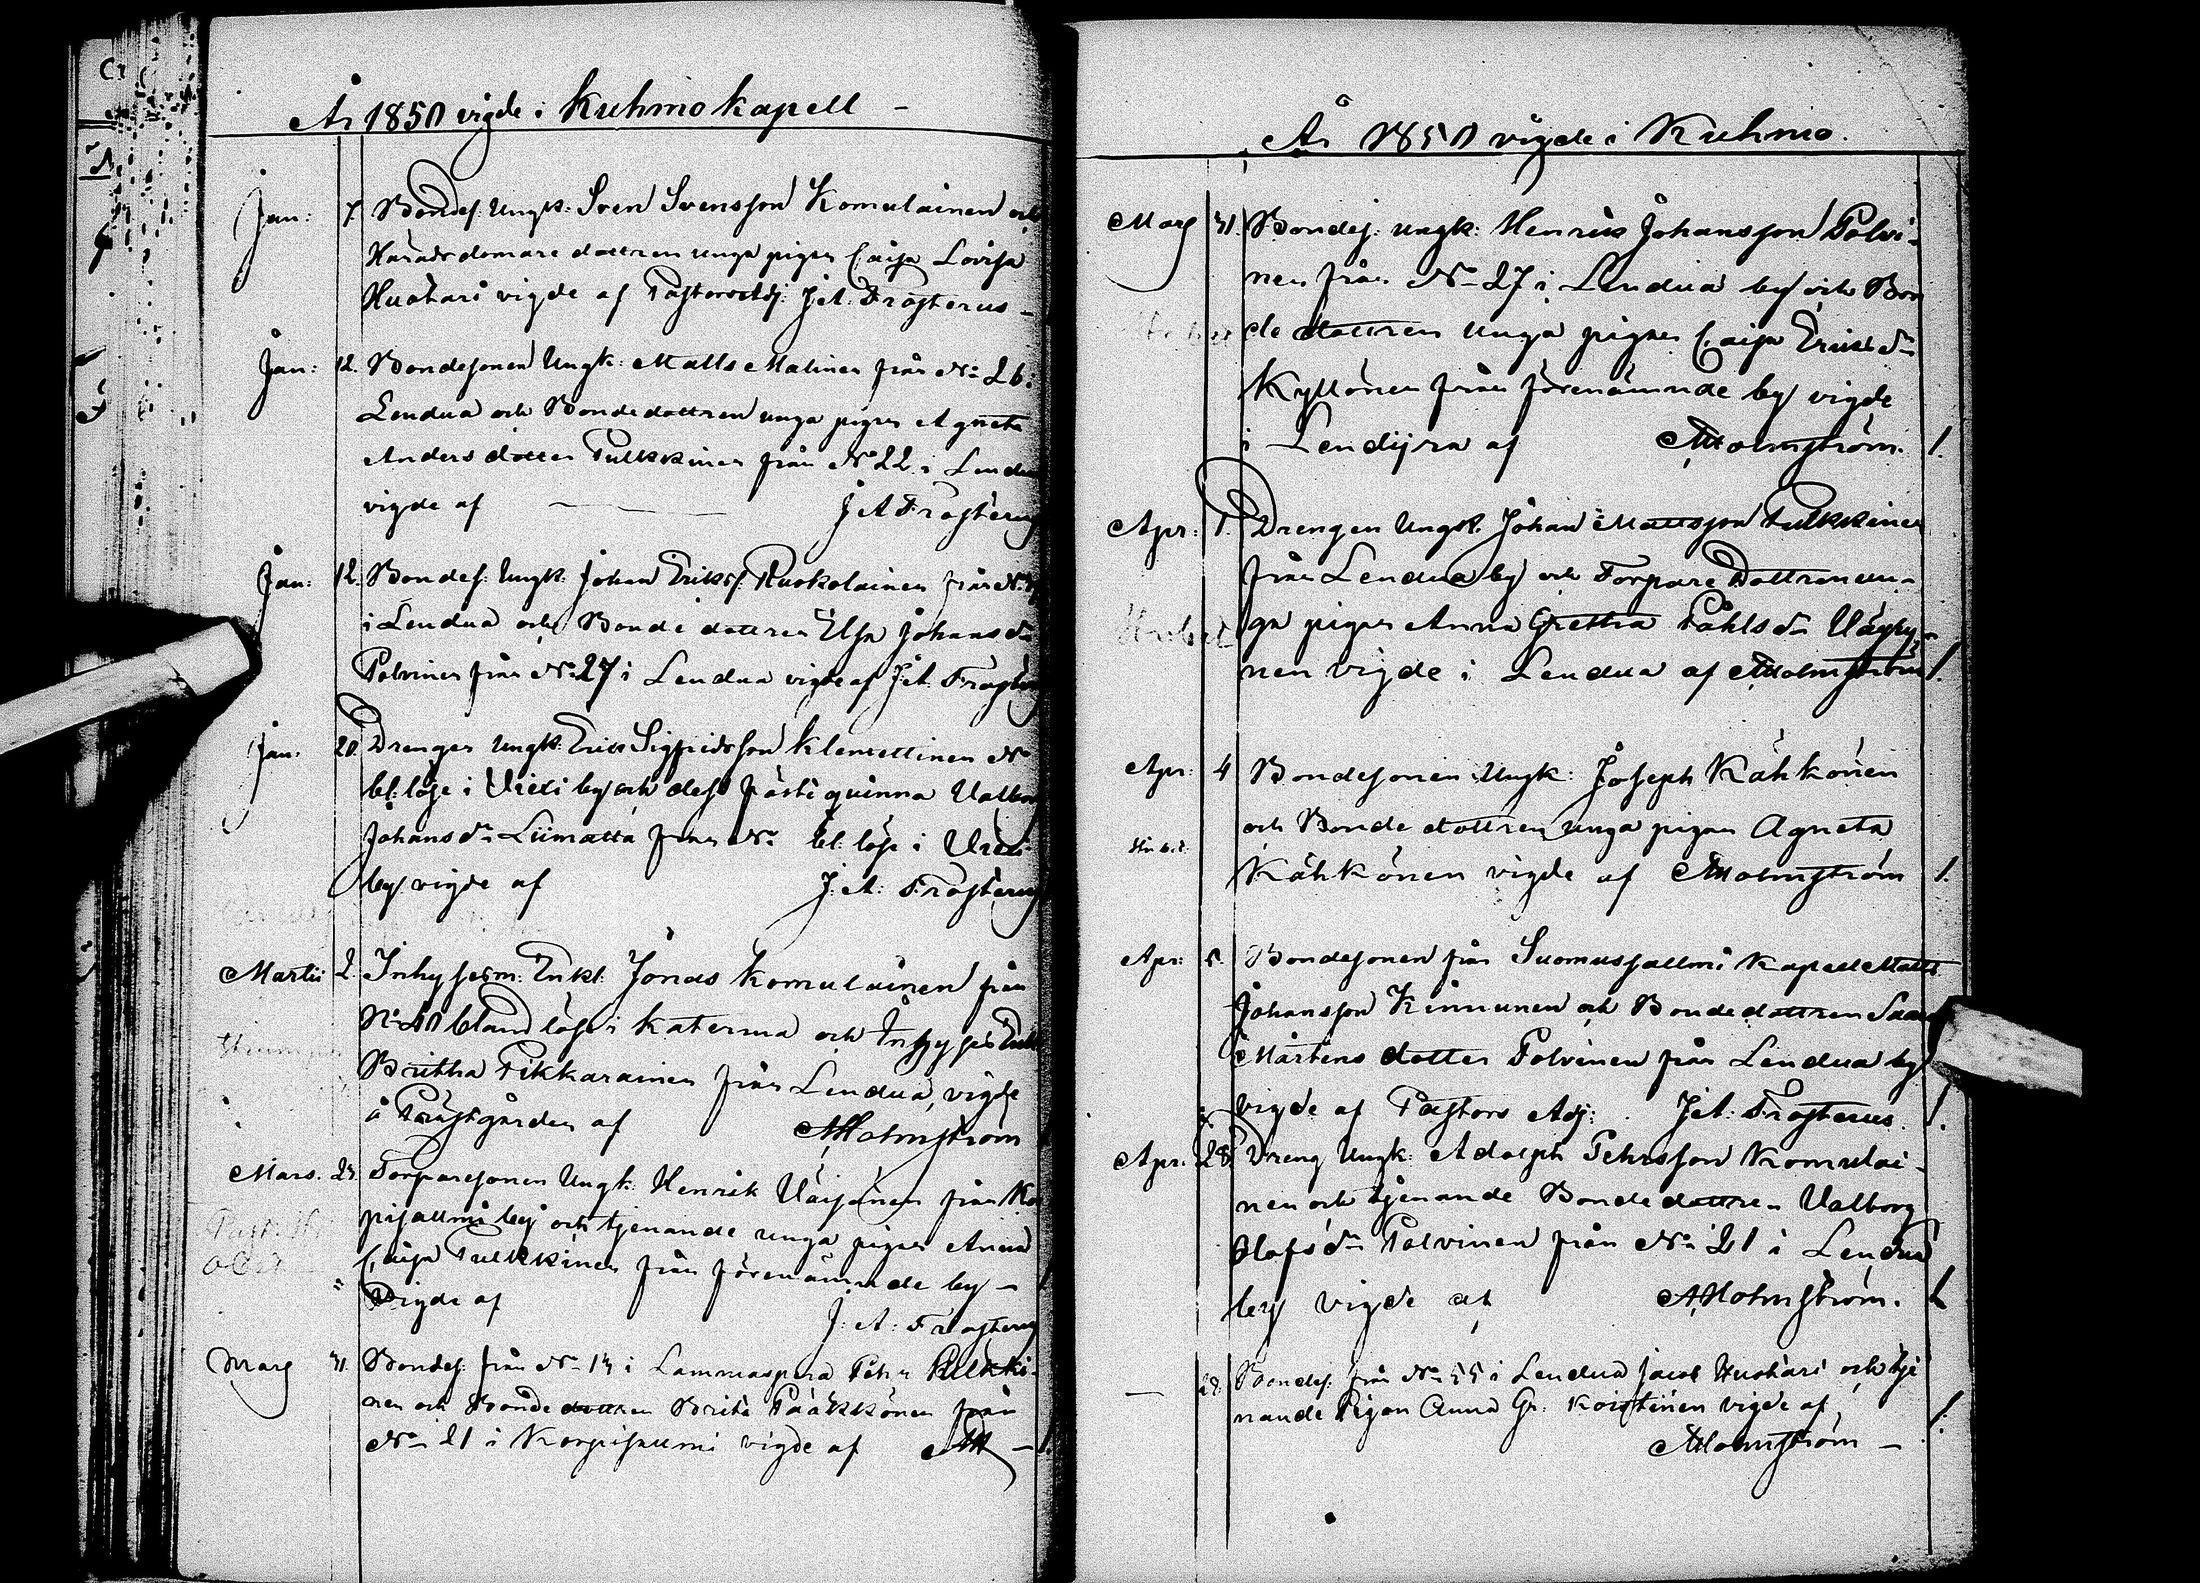 År 1850 vigde i Kuhmo kapell -
Jan: 7. Bondes. Ungk: Sven Svensson Komulainen och
Häradsdomare dottren unga pigan Caisa Lovisa
Huotari vigde af Pastorsadj: J.A. Frosterus -
Jan: 12. Bondesonen Ungk: Matts Malinen från No 26 i
Lendua och Bondedottren unga pigan Agneta
Anders dotter Pulkkinen från No 22 i Lendua
vigde af J A Frosterus
Jan: 12. Bondes: Ungk: Johan Erikss. Ruokolainen från No
i Lendua och Bonde dottren Elsa Johans dr
Polvinen från No 27 i Lendua vigde af J.A. Frosterus
Jan: 20. Drengen Ungk: Erik Sigfridsson Klemettinen No
bl: löse i Viexi by och dess fästeqvinna Valborg
Johans dr Liimatta från No bl: löse i Viexi
by vigde af J: A: Frosterus
Martii 2. Inhysesm: Enkl: Jonas Komulainen från
No 40 bland löse i Katerma och Inhyses Enk
Britha Pikkarainen från Lendua, vigde
å Prästgården af AHolmström
Mars. 23. Torparesonen Ungk: Henrik Väisänen från Kor
pisallmi by och tjenande unga pigan Anna
Caisa Pulkkinen från förenämnde by - 1
Vigde af J: A: Frosterus
Mars 31. Bondes: från No 13 i Lammaspera Pehr Pulkki-
nen och Bonde dottren Brita Pääkkönen från
No 21 i Korpisallmi vigde af AH - 1.
År 1850 vigde i Kuhmo.
Mars 31. Bondes: ungk: Henrik Johansson Polvi-
nen från No 27 i Lendua by och Bon
de dottren unga pigan Caisa Eriks dr
Kyllönen från förenämnde by vigde
i Lendijra af AHolmström. 1.
Apr: 1. Drengen Ungk. Johan Mattsson Pulkkinen
från Lendua by och Torpare Dottren un-
ga pigan Anna Gretha Påhls dr Väyry-
nen vigde i Lendua af AHolmström 1.
Apr: 4 Bondesonen Ungk: Joseph Kähkönen
och Bonde dottren unga pigan Agneta
Kähkönen vigde af AHolmström 1.
Apr: 5. Bondesonen från Suomussallmi Kapell Matts
Johansson Kinnunen och Bondedottren Saara
Mårtens dotter Polvinen från Lendua by
vigde af Pastors Adj: J.A. Frosterus. 1.
Apr. 28. Dreng Ungk: Adolph Pehrsson Komulai-
nen och tjenande Bonde dottren Valborg
Olofs dr Polvinen från No 21 i Lendua
by vigde af AHolmström. 1
— 28. Bondes: från No 55 i Lendua Jacob Huotari och tje
nande Pigan Anna Gr: Koistinen vigde af
AHolmström - 1.